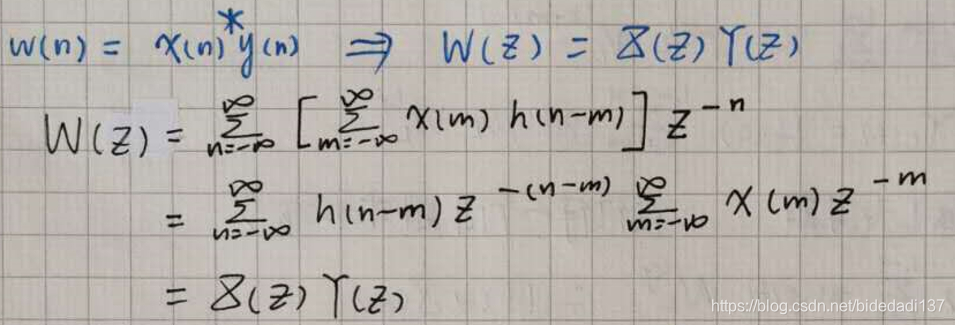 w(n) = x(n)*y(n) ⇒ W(z) = X(z) Y(z)
W(z) = ∑_{n=-∞}^{∞} [ ∑_{m=-∞}^{∞} x(m) h(n-m) ] z^{-n}
= ∑_{n=-∞}^{∞} h(n-m) z^{-(n-m)} ∑_{m=-∞}^{∞} x(m) z^{-m}
= X(z) Y(z)
https://blog.csdn.net/bidedadi137